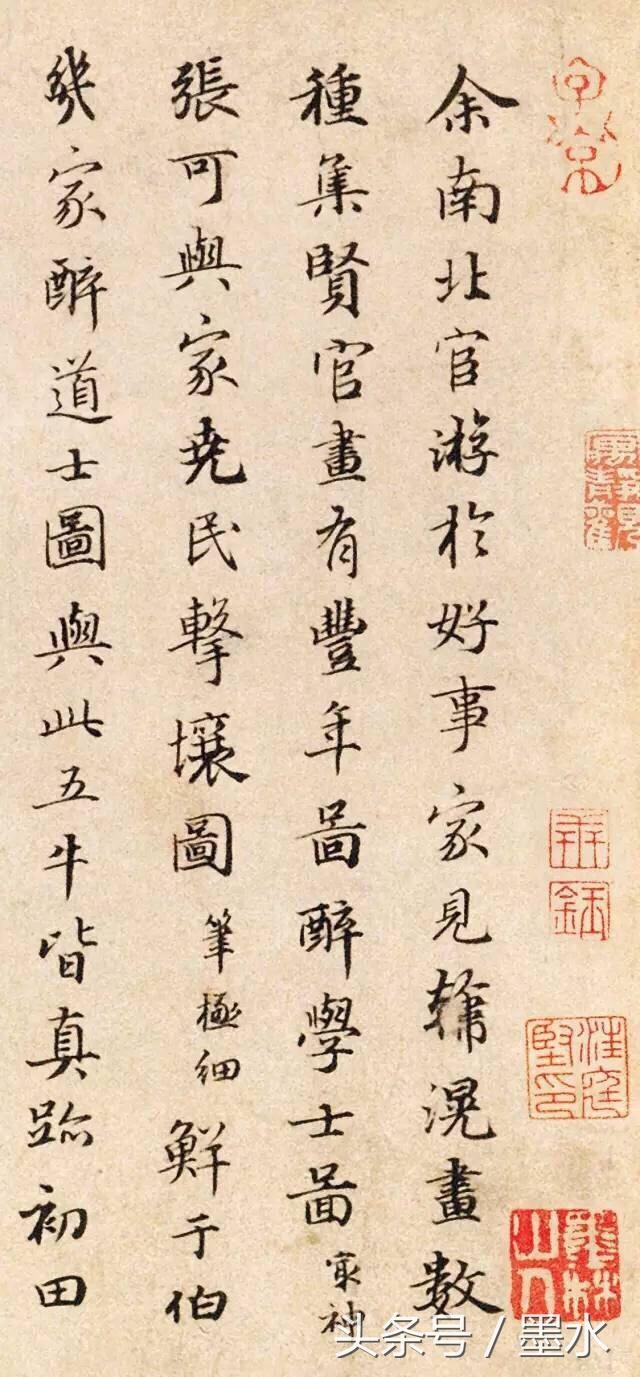 余南北宦游於好事家見韓滉畫數
種集賢官畫有豐年啚醉學士啚㝡神
張可與家堯民擊壤圖筆極細鮮于伯
幾家醉道士圖與此五牛皆真跡初田
墨林山人
头条号 / 墨水